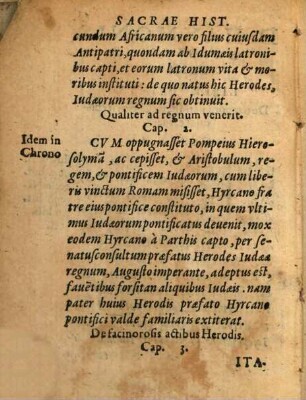 SACRAE HIST.
cundum Africanum vero filius cuiusdam
Antipatri, quondam ab Idumæis latroni
bus capti, et eorum latronum vita & mo
ribus instituti: de quo natus hic Herodes,
Iudæorum regnum sic obtinuit.
Qualiter ad regnum venerit.
Cap. 2.
Idem in
Chrono
CVM oppugnasset Pompeius Hiero
solymā, ac cepisset, & Aristobulum, re
gem, & pontificem Iudæorum, cum libe
ris vinctum Romam misisset, Hyrcano fra
tre eius pontifice constituto, in quem vlti
mus Iudæorum pontificatus deuenit, mox
eodem Hyrcano à Parthis capto, per se
natusconsultum præfatus Herodes Iudææ
regnum, Augusto imperante, adeptus est,
fauētibus forsitan aliquibus Iudæis. nam
pater huius Herodis præfato Hyrcano
pontifici valde familiaris extiterat.
De facinorosis actibus Herodis.
Cap. 3.
ITA.